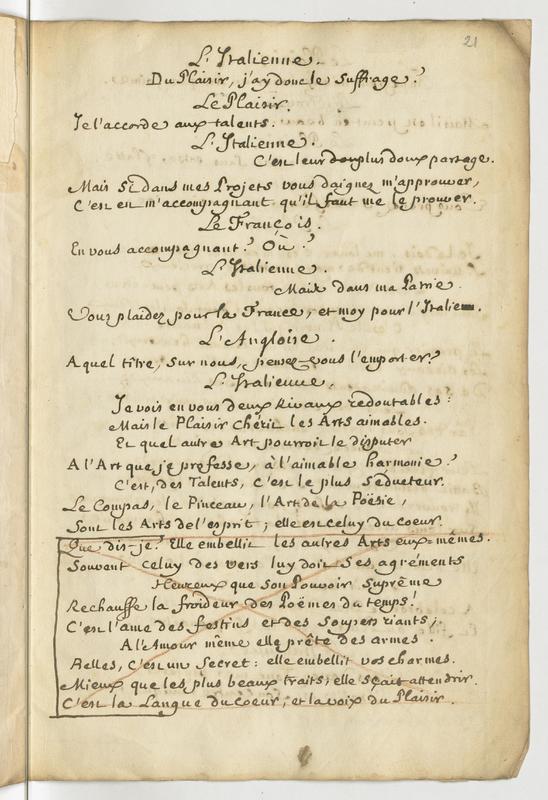 21
L'Italienne.
Du Plaisir, j'ay donc le suffrage?
Le Plaisir.
Je l'accorde aux talents.
L'Italienne.
C'est leur plus doux partage.
Mais si dans mes Projets vous daignez m'approuver,
C'est en m'accompagnant qu'il faut me le prouver.
Le François.
En vous accompagnant? Où?
L'Italienne.
Mais dans ma Patrie.
Vous plaidez pour la France, et moy pour l'Italie
L'Angloise.
A quel titre, sur nous, pensez-vous l'emporter?
L'Italienne.
Je vois en vous deux Rivaux redoutables:
Mais le Plaisir chérit les Arts aimables.
Et quel autre Art pourroit le disputer
A l'Art que je professe, à l'aimable harmonie?
C'est, des Talents, c'est le plus séducteur.
Le Compas, le Pinceau, l'Art de la Poësie,
Sont les Arts de l'esprit; elle est celuy du coeur.
Que dis-je? Elle embellit les autres Arts eux-mêmes.
Souvent celuy des vers luy doit ses agréments
Heureux que son Pouvoir suprême
Rechauffe la froideur des Poëmes du temps!
C'est l'ame des festins et des soupers riants;
A l'Amour même elle prête des armes.
Belles, c'est un secret: elle embellit vos charmes.
Mieux que les plus beaux traits, elle sçait attendrir.
C'est la Langue du coeur, et la voix du Plaisir.